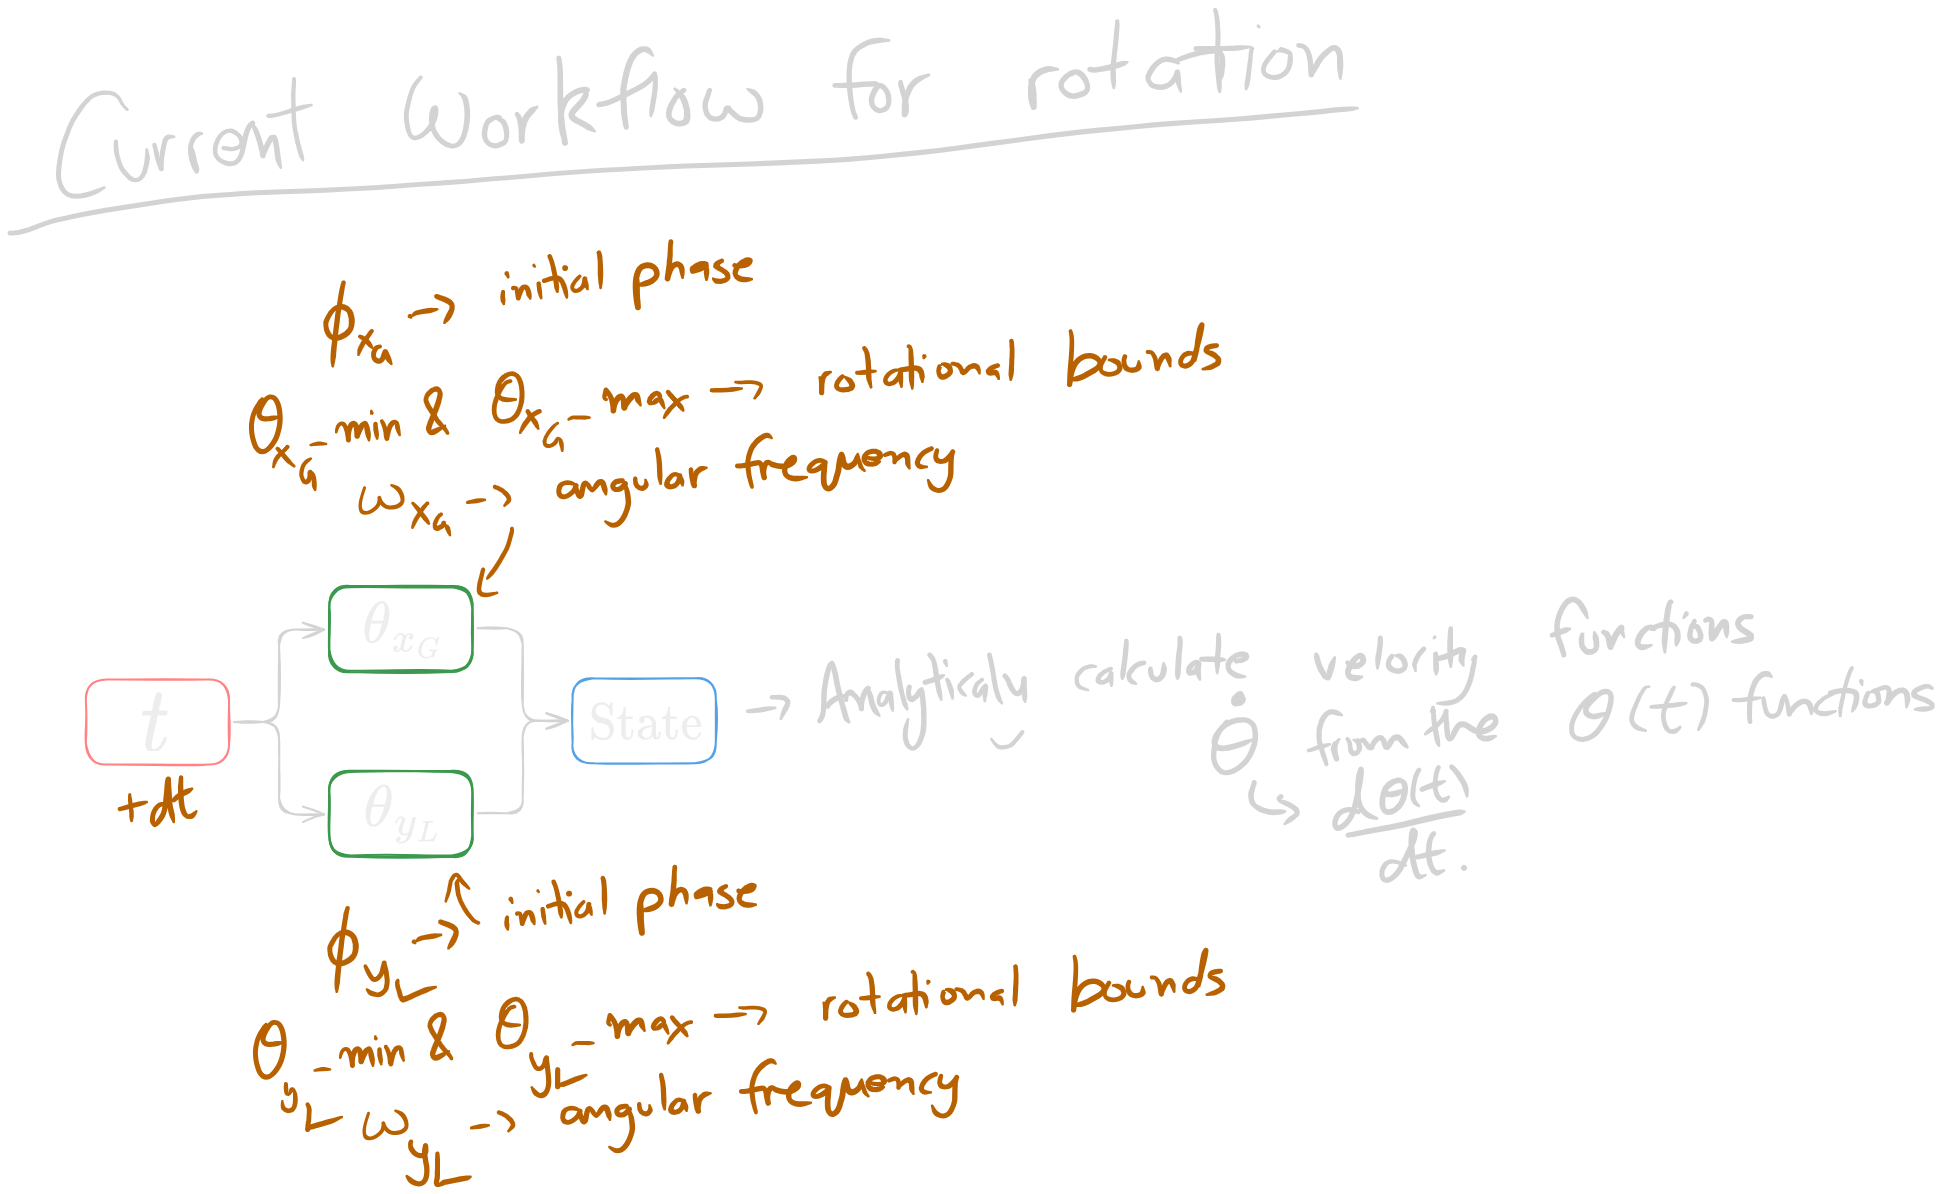 Current Workflow for rotation
ϕ_{x_G} → initial phase
θ_{x_G}_min & θ_{x_G}_max → rotational bounds
ω_{x_G} → angular frequency
θ_{x_G}
t
+dt
State
→ Analyticaly calculate velority functions
θ̇ from the θ(t) functions
↳ dθ(t)/dt.
θ_{y_L}
ϕ_{y_L} → initial phase
θ_{y_L}_min & θ_{y_L}_max → rotational bounds
ω_{y_L} → angular frequency